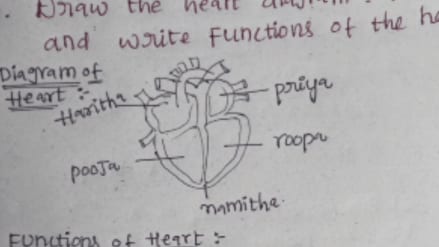 . Draw the heart diagram
and write Functions of the he
Diagram of
Heart :-
Haritha
priya
pooja
roopa
namitha.
Functions of Heart :-